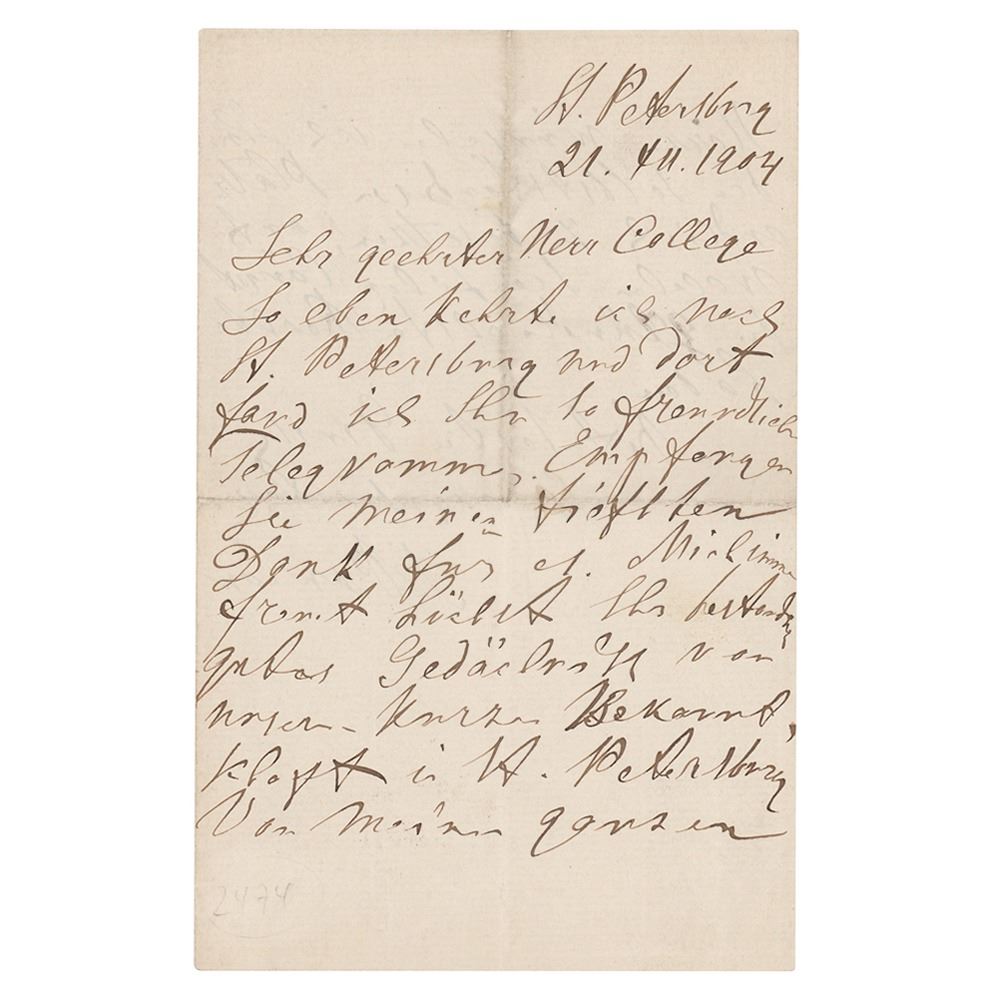 St. Petersburg
21. XII. 1904
Sehr geehrter Herr College
So eben kehrte ich nach
St. Petersburg und dort
fand ich Ihr so freundliche
Telegramm. Empfangen
Sie meinen tiefsten
Dank für es. Mich imme
freut höchst Ihr bestandig
gutes Gedächniss von
unsern kurzen Bekannt
schaft in St. Petersburg
Von meinen ganzen
2474